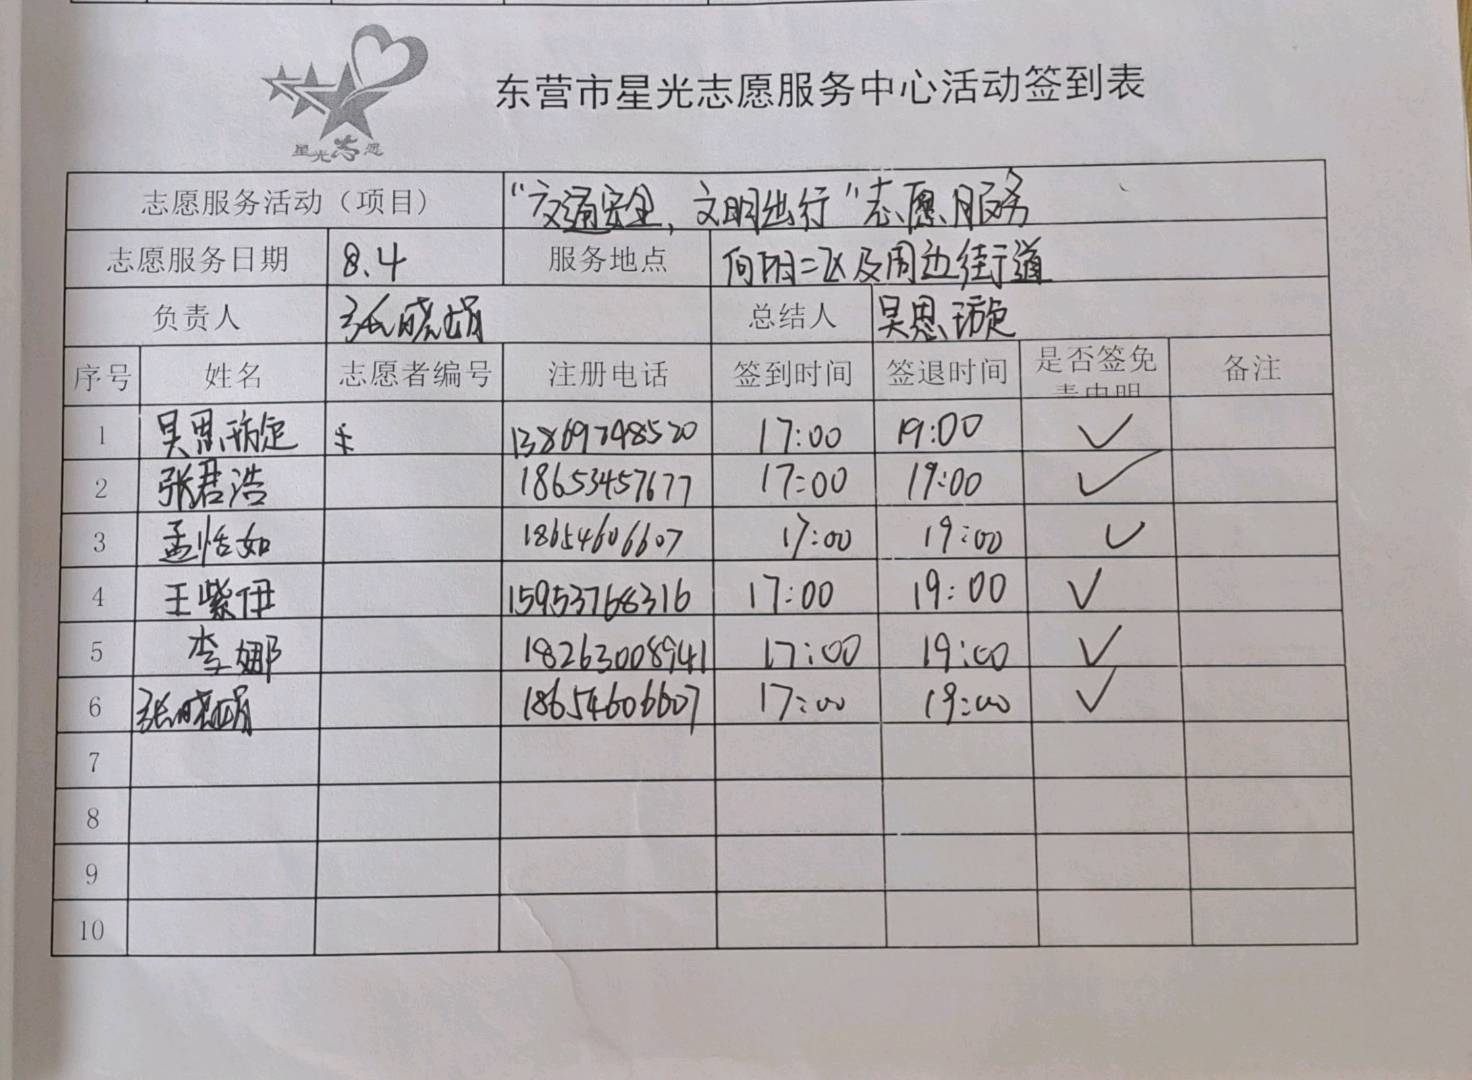 星光志愿
东营市星光志愿服务中心活动签到表
志愿服务活动（项目） “交通安全，文明出行”志愿服务
志愿服务日期 8.4 服务地点 向阳二区及周边街道
负责人 张晓娟 总结人 吴思璇
序号 姓名 志愿者编号 注册电话 签到时间 签退时间 是否签免 备注
责申明
1 吴思璇 13869748520 17:00 19:00 ✓
2 张君浩 18653457677 17:00 19:00 ✓
3 孟恬如 18654606607 17:00 19:00 ✓
4 王紫伊 15953768316 17:00 19:00 ✓
5 李娜 18263008941 17:00 19:00 ✓
6 张晓娟 18654606607 17:00 19:00 ✓
7
8
9
10